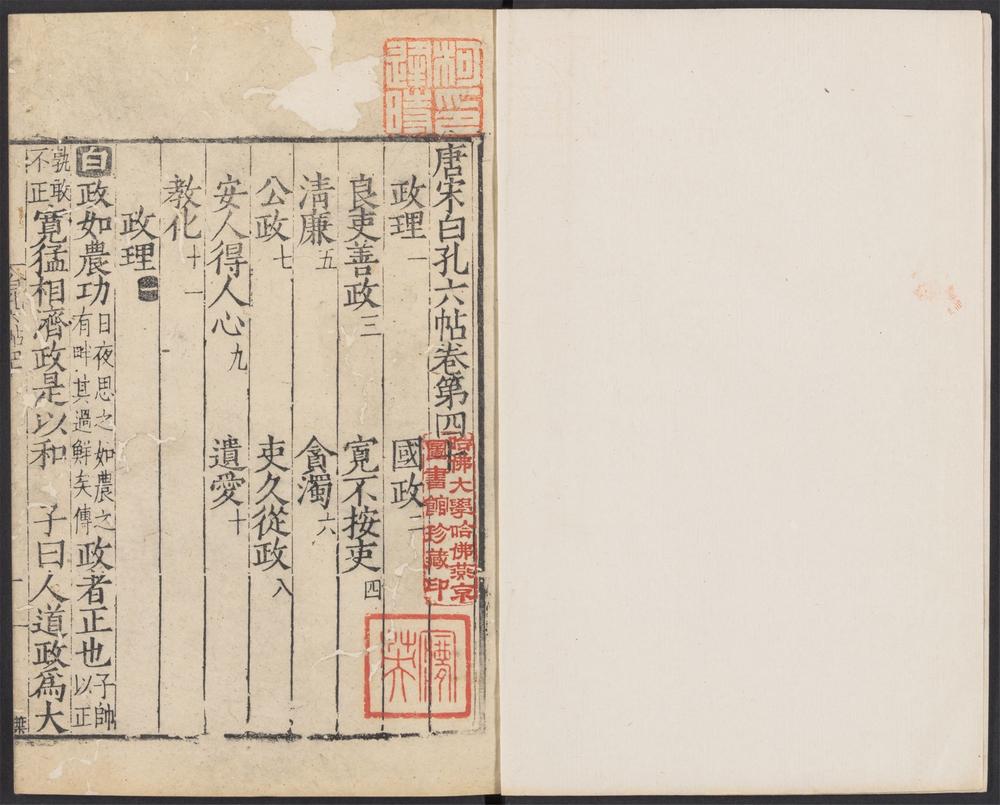 唐宋白孔六帖卷第四十
政理一 國政二
良吏善政三 寬不按吏四
清廉五 貪濁六
公政七 吏久從政八
安人得人心九 遺愛十
教化十一
政理一
白政如農功日夜思之如農之有畔其過鮮矣傳政者正也子帥以正
孰敢不正寬猛相濟政是以和 子曰人道政爲大
葉
哈佛大學哈佛燕京
圖書館珍藏印